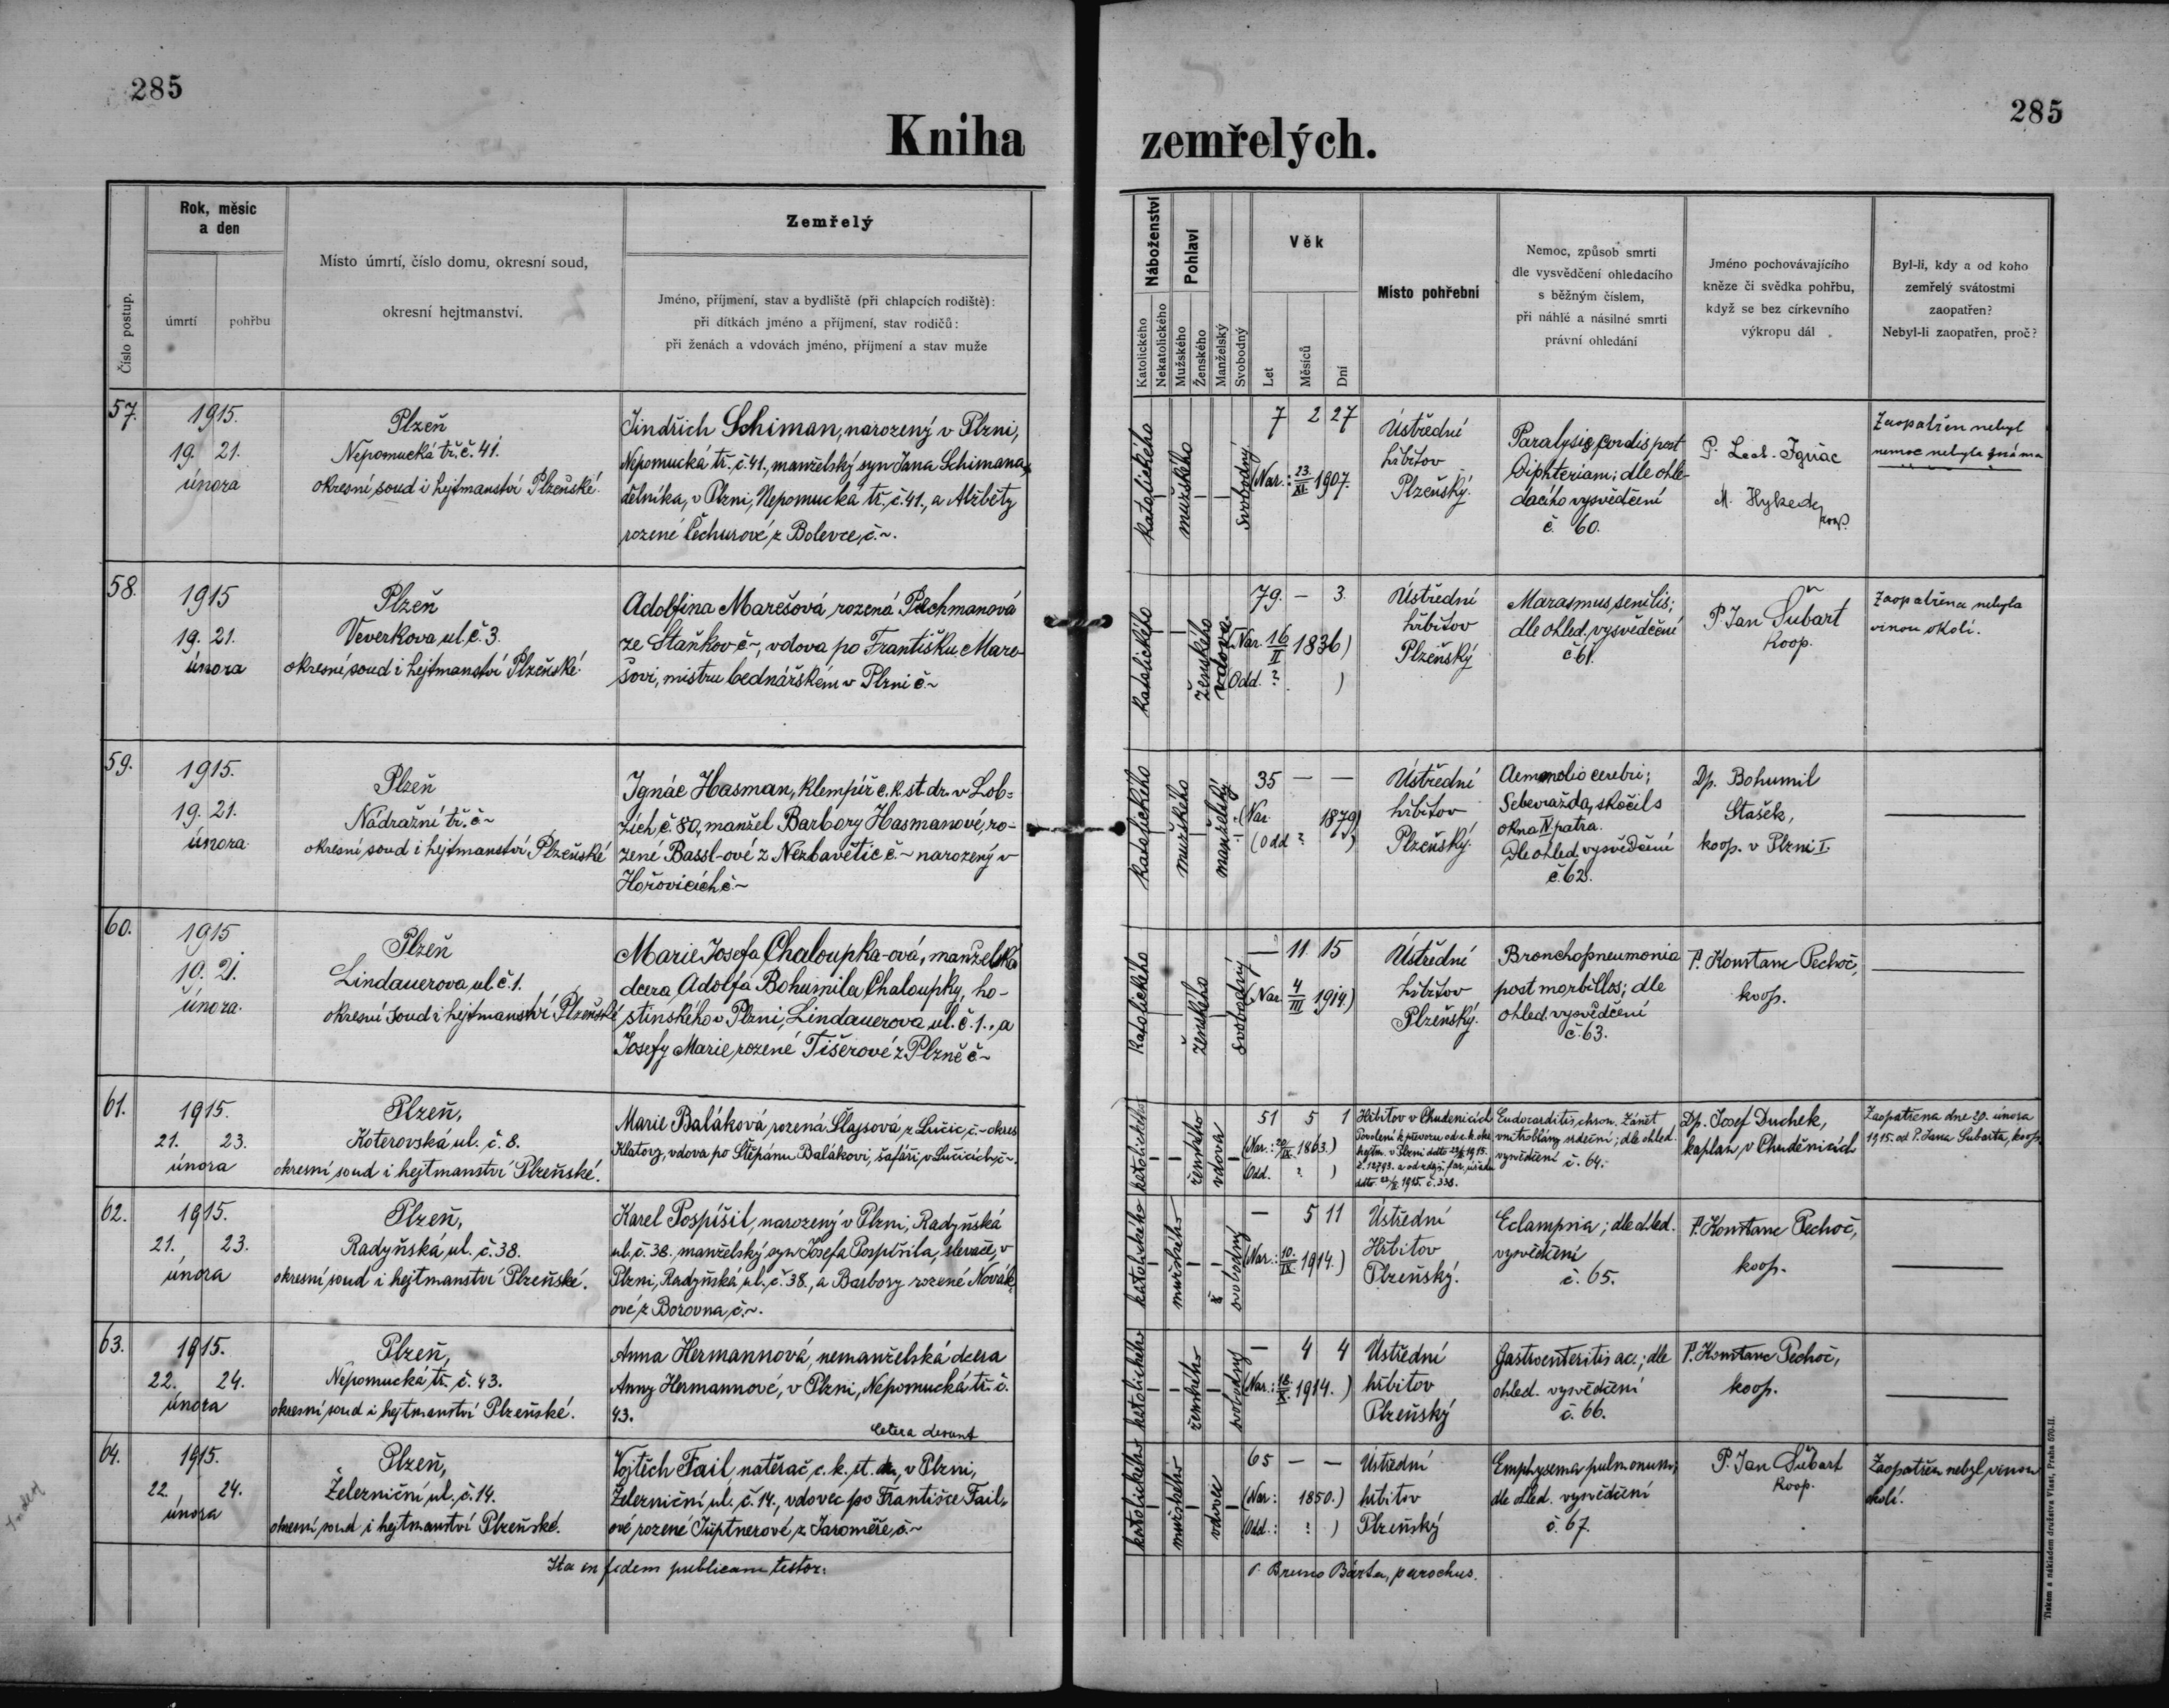 285
285
Kniha zemřelých.
Číslo postup.
Rok, měsíc
a den
úmrtí
pohřbu
Místo úmrtí, číslo domu, okresní soud,
okresní hejtmanství.
Zemřelý
Jméno, příjmení, stav a bydliště (při chlapcích rodiště):
při dítkách jméno a příjmení, stav rodičů:
při ženách a vdovách jméno, příjmení a stav muže
Náboženství
Katolického
Nekatolického
Pohlaví
Mužského
Ženského
Manželský
Svobodný
Věk
Let
Měsíců
Dní
Místo pohřební
Nemoc, způsob smrti
dle vysvědčení ohledacího
s běžným číslem,
při náhlé a násilné smrti
právní ohledání
Jméno pochovávajícího
kněze či svědka pohřbu,
když se bez církevního
výkropu dál
Byl-li, kdy a od koho
zemřelý svátostmi
zaopatřen?
Nebyl-li zaopatřen, proč?
57.
1915.
19. 21.
února
Plzeň
Nepomucká tř. č. 41.
okresní soud i hejtmanství Plzeňské.
Jindřich Schiman, narozený v Plzni,
Nepomucká tř. č. 41., manželský syn Jana Schimana,
dělníka, v Plzni, Nepomucká tř. č. 41., a Alžběty
rozené Čechurové z Bolevce, č. ~.
katolického
mužského
svobodný
7 2 27
(Nar.: 23./XI. 1907.
Ústřední
hřbitov
Plzeňský.
Paralysis cordis post
Diphteriam; dle ohle-
dacího vysvědčení
č. 60.
P. Ignác
M. Hykeds
koop.
Zaopatřen nebyl
nemoc nebyla známa
58.
1915
19. 21.
února
Plzeň
Veverkova ul. č. 3.
okresní soud i hejtmanství Plzeňské.
Adolfina Marešová rozená Pechmanová
ze Staňkov č ~, vdova po Františku Mare-
šovi, mistru bednářském v Plzni č. ~
katolického
ženského
vdova
79. — 3.
(Nar. 16/II 1836)
Odd. ? )
Ústřední
hřbitov
Plzeňský
Marasmus senilis;
dle ohled. vysvědčení
č 61.
P. Jan Šubart
koop.
Zaopatřena nebyla
vinou okolí.
59.
1915.
19. 21.
února.
Plzeň
Nádražní tř. č ~
okresní soud i hejtmanství Plzeňské
Ignác Hasman, klempíř c. k. st. dr. v Lob-
zích, č. 80, manžel Barbory Hasmanové, ro-
zené Bassl-ové z Nezbavětic č. ~ narozený v
Hořovicích č. ~
katolického
mužského
manželský
35 — —
(Nar. 1879)
(Odd ? )
Ústřední
hřbitov
Plzeňský.
cerebri;
Sebevražda, skočil s
okna IV. patra.
Dle ohled. vysvědčení
č. 62.
Dp. Bohumil
Stašek,
koop. v Plzni I.
60.
1915
19. 21.
února.
Plzeň
Lindauerova ul. č. 1.
okresní soud i hejtmanství Plzeňské
Marie Josefa Chaloupka-ová, manželská
dcera Adolfa Bohumila Chaloupky, ho-
stinského v Plzni, Lindauerova ul. č. 1., a
Josefy Marie, rozené Tišerové z Plzně č ~
katolického
ženského
svobodný
— 11 15
(Nar. 4/III 1914)
Ústřední
hřbitov
Plzeňský.
Bronchopneumonia
post morbillos; dle
ohled. vysvědčení
č. 63.
P. Konstanc Pechoč,
koop.
61.
1915.
21. 23.
února
Plzeň,
Koterovská ul. č. 8.
okresní soud i hejtmanství Plzeňské.
Marie Baláková, rozená Šlajsová z Lučic, č. ~ okres
Klatovy, vdova po Štěpánu Balákovi, šafáři, v Lučicích, č ~.
katolického
ženského
vdova
51 5 1
(Nar.: 20/IX. 1863.)
Odd. ? )
Hřbitov v Chudenicích
Povolení k převozu od c. k. okr.
hejtm. v Plzni ddto 1915.
č. 12793. a od
1915. č. 338.
Endocarditis chron. Zánět
vnitroblány srdeční; dle ohled.
vysvědčení č. 64.
Dp. Josef Duchek,
kaplan v Chudenicích
Zaopatřena dne 20. února
1915. od P. Jana Šubarta, koop.
62.
1915.
21. 23.
února
Plzeň,
Radyňská ul. č. 38.
okresní soud i hejtmanství Plzeňské.
Karel Pospíšil, narozený v Plzni, Radyňská
ul. č. 38., manželský syn Josefa Pospíšila, slevače, v
Plzni, Radyňská ul., č. 38., a Barbory rozené Novák-
ové z Borovna, č. ~.
katolického
mužského
svobodný
— 5 11
(Nar.: 10./IX. 1914.)
Ústřední
Hřbitov
Plzeňský.
Eclampsia; dle ohled.
vysvědčení
č. 65.
P. Konstanc Pechoč,
koop.
63.
1915.
22. 24.
února
Plzeň,
Nepomucká tř. č. 43.
okresní soud i hejtmanství Plzeňské.
Anna Hermannová, nemanželská dcera
Anny Hermannové, v Plzni, Nepomucká tř. č.
43.
Cetera desunt
katolického
ženského
svobodný
— 4 4
(Nar.: 18./X. 1914.)
Ústřední
hřbitov
Plzeňský
Gastroenteritis ac.; dle
ohled. vysvědčení
č. 66.
P. Konstanc Pechoč,
koop.
64.
1915.
22. 24.
února
Plzeň,
Železniční ul. č. 14.
okresní soud i hejtmanství Plzeňské.
Vojtěch Fail, natěrač, c. k. st. dr., v Plzni,
Železniční ul. č. 14., vdovec po Františce Fail-
ové rozené Jüptnerové z Jaroměře, č. ~
katolického
mužského
vdovec
65 — —
(Nar: 1850.)
(Odd.: ? )
Ústřední
hřbitov
Plzeňský
Emphysema pulmonum;
dle ohled. vysvědčení
č. 67.
P. Jan Šubart
koop.
Zaopatřen nebyl, vinou
okolí.
Ita in fidem publicam testor: P. Bruno Bárta, parochus.
Tiskem a nákladem družstva Vlast, Praha 570-II.